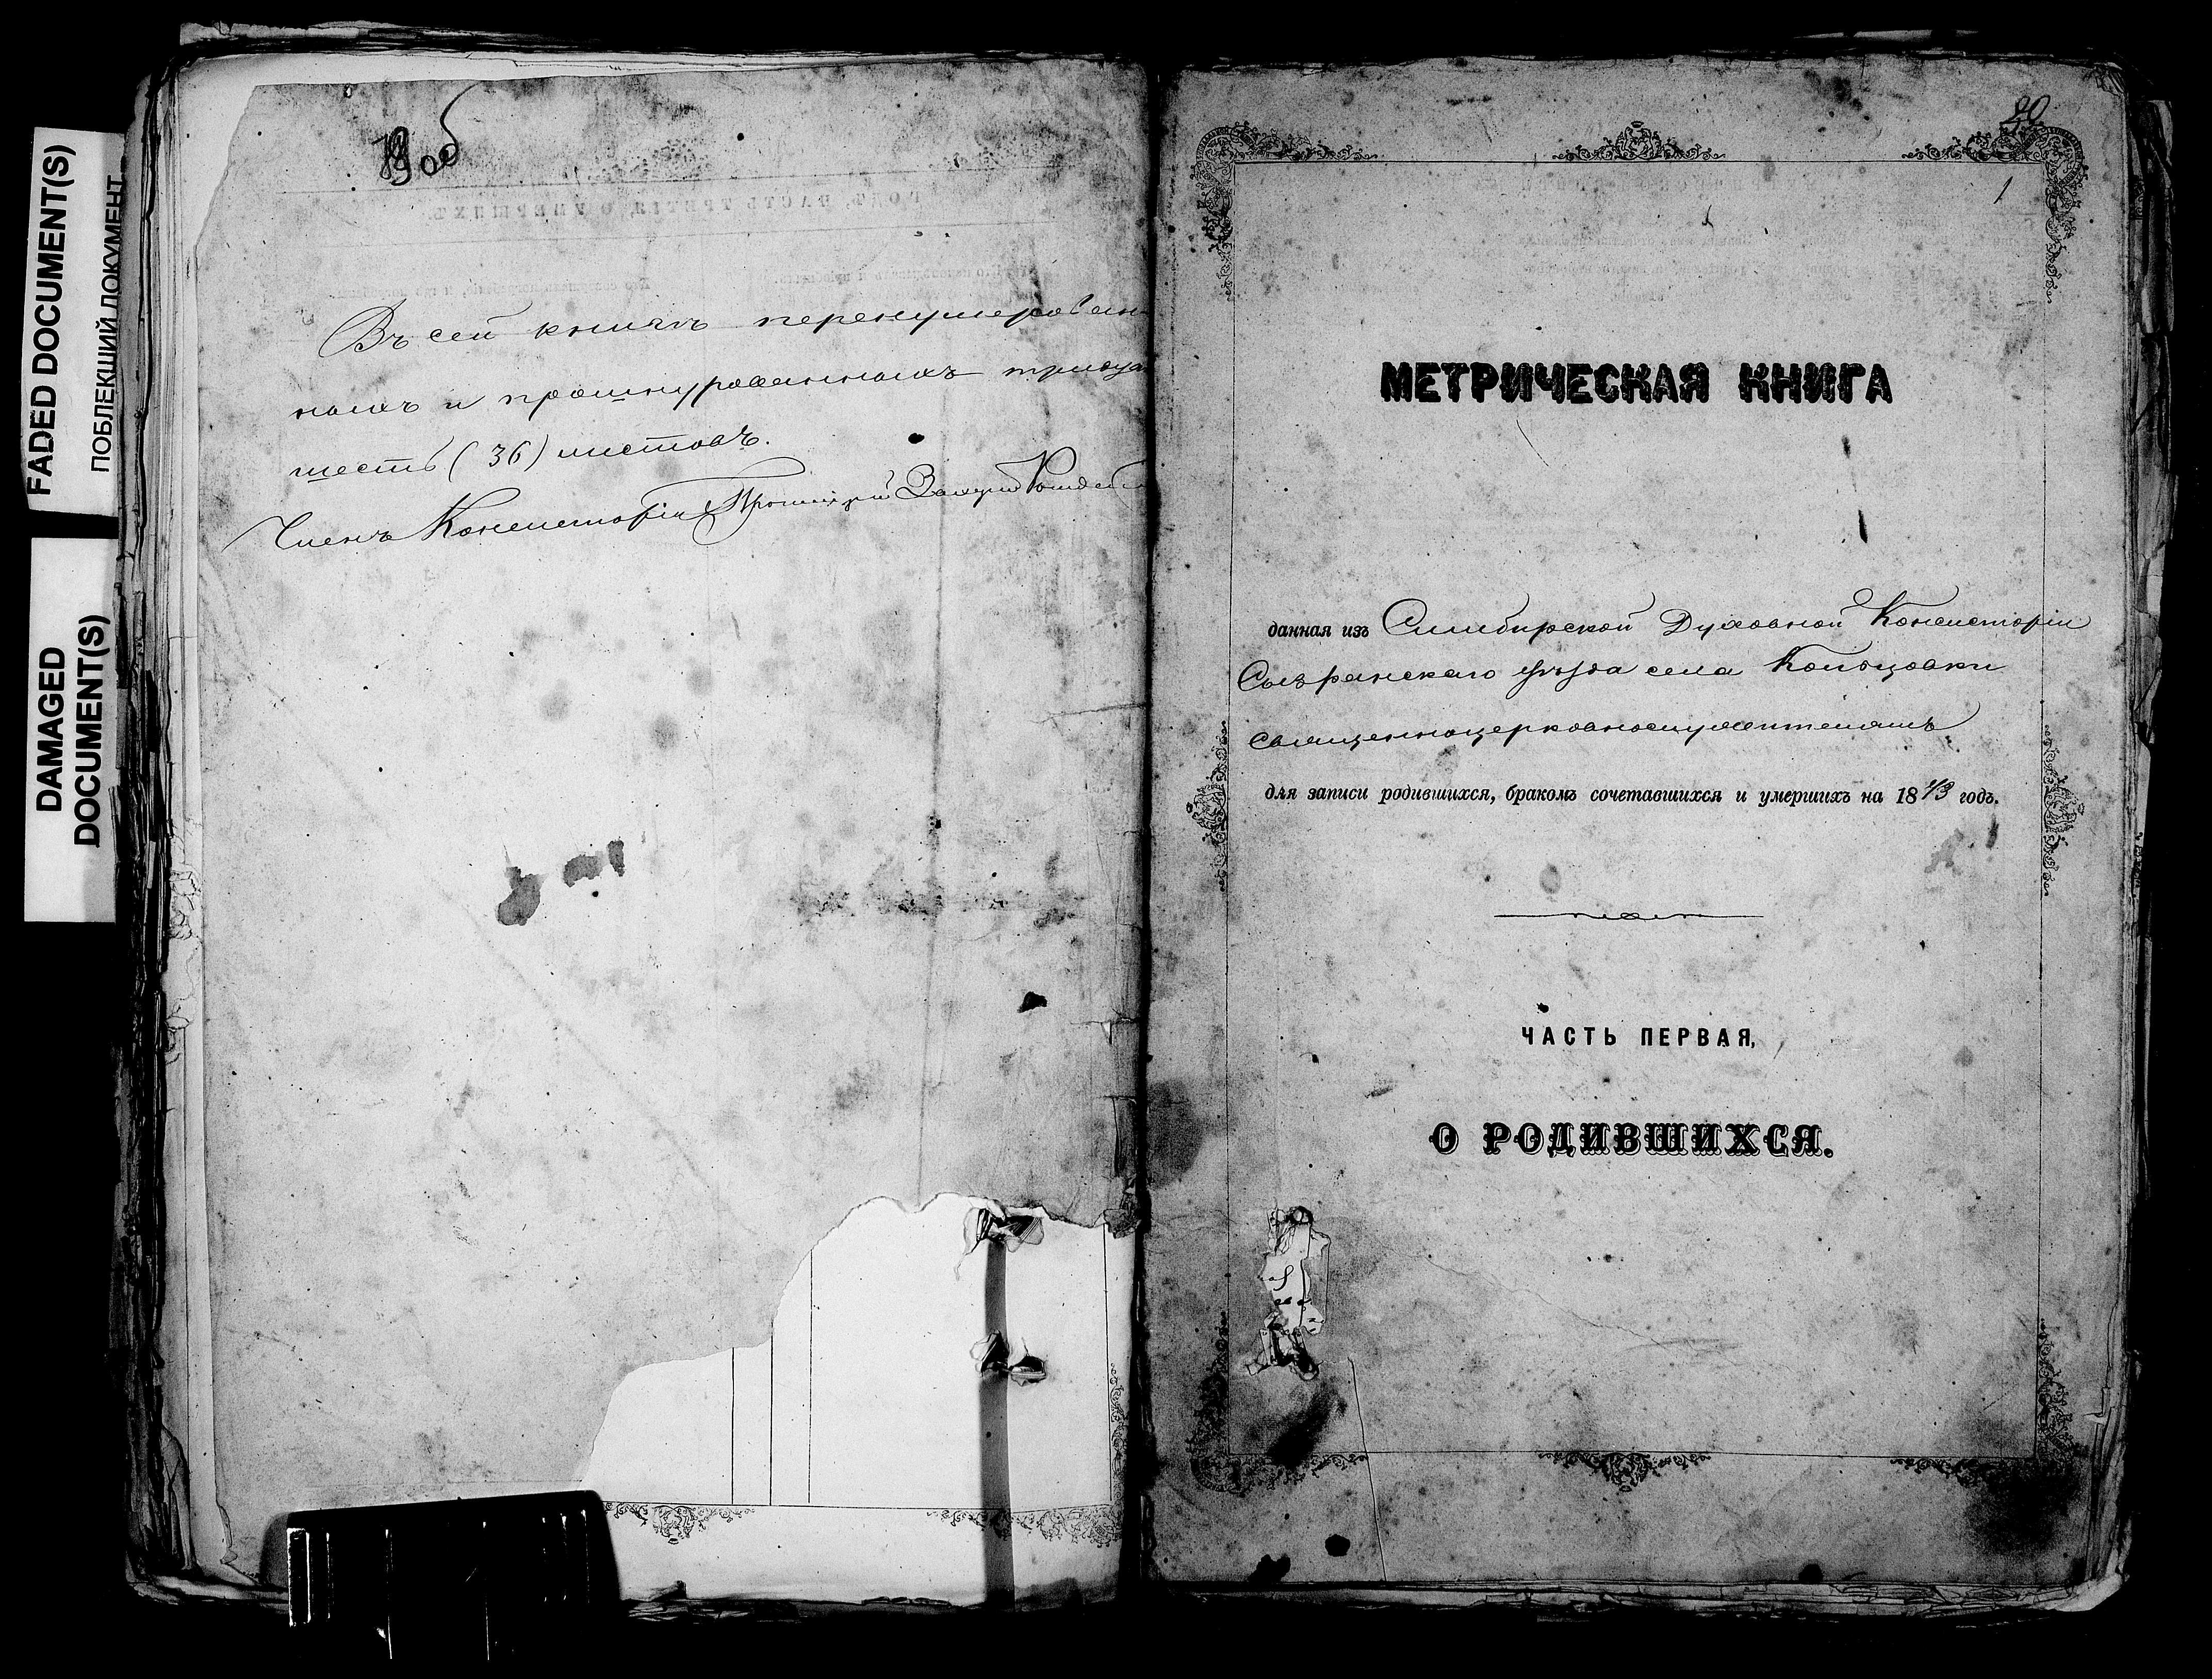 FADED DOCUMENT(S)
ПОБЛЕКШИЙ ДОКУМЕНТ
DAMAGED
DOCUMENT(S)
Въ сей книгѣ перенумерован
ныхъ и прошнурованныхъ тридца
шесть (36) листовъ.
Членъ Консисторіи Протоіерей
20
1
МЕТРИЧЕСКАЯ КНИГА
данная изъ Симбирской Духовной Консисторіи
Сызранскаго уѣзда села Кольцовки
священноцерковнослужителямъ
для записи родившихся, бракомъ сочетавшихся и умершихъ на 1873 годъ.
ЧАСТЬ ПЕРВАЯ,
О РОДИВШИХСЯ.